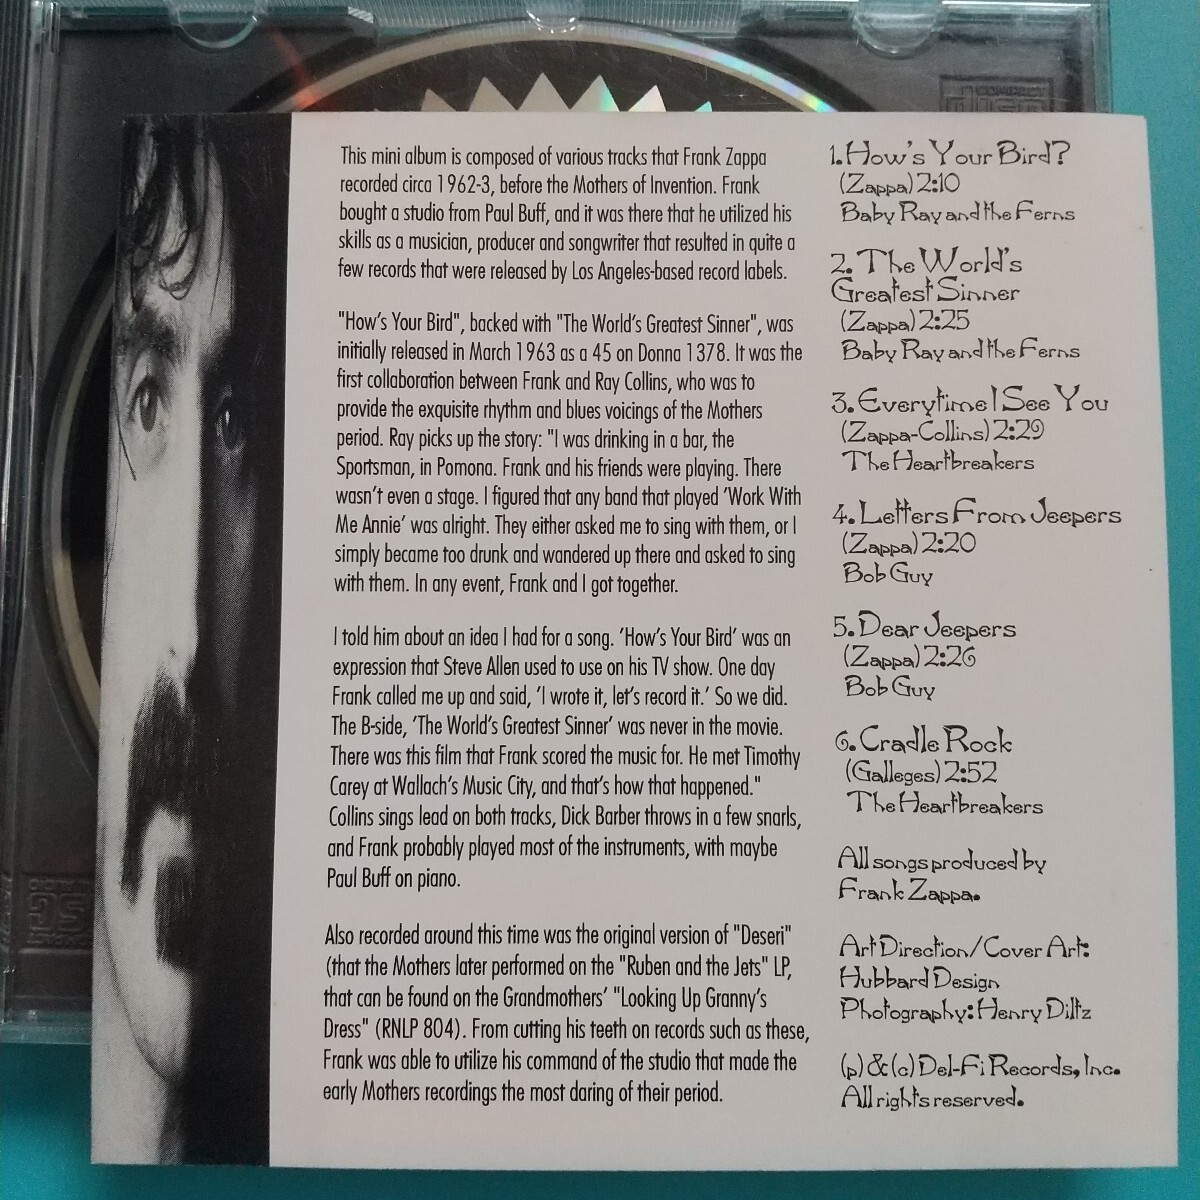 This mini album is composed of various tracks that Frank Zappa
recorded circa 1962-3, before the Mothers of Invention. Frank
bought a studio from Paul Buff, and it was there that he utilized his
skills as a musician, producer and songwriter that resulted in quite a
few records that were released by Los Angeles-based record labels.
"How's Your Bird", backed with "The World's Greatest Sinner", was
initially released in March 1963 as a 45 on Donna 1378. It was the
first collaboration between Frank and Ray Collins, who was to
provide the exquisite rhythm and blues voicings of the Mothers
period. Ray picks up the story: "I was drinking in a bar, the
Sportsman, in Pomona. Frank and his friends were playing. There
wasn't even a stage. I figured that any band that played 'Work With
Me Annie' was alright. They either asked me to sing with them, or I
simply became too drunk and wandered up there and asked to sing
with them. In any event, Frank and I got together.
I told him about an idea I had for a song. 'How's Your Bird' was an
expression that Steve Allen used to use on his TV show. One day
Frank called me up and said, 'I wrote it, let's record it.' So we did.
The B-side, 'The World's Greatest Sinner' was never in the movie.
There was this film that Frank scored the music for. He met Timothy
Carey at Wallach's Music City, and that's how that happened."
Collins sings lead on both tracks, Dick Barber throws in a few snarls,
and Frank probably played most of the instruments, with maybe
Paul Buff on piano.
Also recorded around this time was the original version of "Deseri"
(that the Mothers later performed on the "Ruben and the Jets" LP,
that can be found on the Grandmothers' "Looking Up Granny's
Dress" (RNLP 804). From cutting his teeth on records such as these,
Frank was able to utilize his command of the studio that made the
early Mothers recordings the most daring of their period.
1. How's Your Bird?
(Zappa) 2:10
Baby Ray and the Ferns
2. The World's
Greatest Sinner
(Zappa) 2:25
Baby Ray and the Ferns
3. Everytime I See You
(Zappa-Collins) 2:29
The Heartbreakers
4. Letters From Jeepers
(Zappa) 2:20
Bob Guy
5. Dear Jeepers
(Zappa) 2:26
Bob Guy
6. Cradle Rock
(Galleges) 2:52
The Heartbreakers
All songs produced by
Frank Zappa.
Art Direction/Cover Art:
Hubbard Design
Photography: Henry Diltz
(p) & (c) Del-Fi Records, Inc.
All rights reserved.
COMPACT